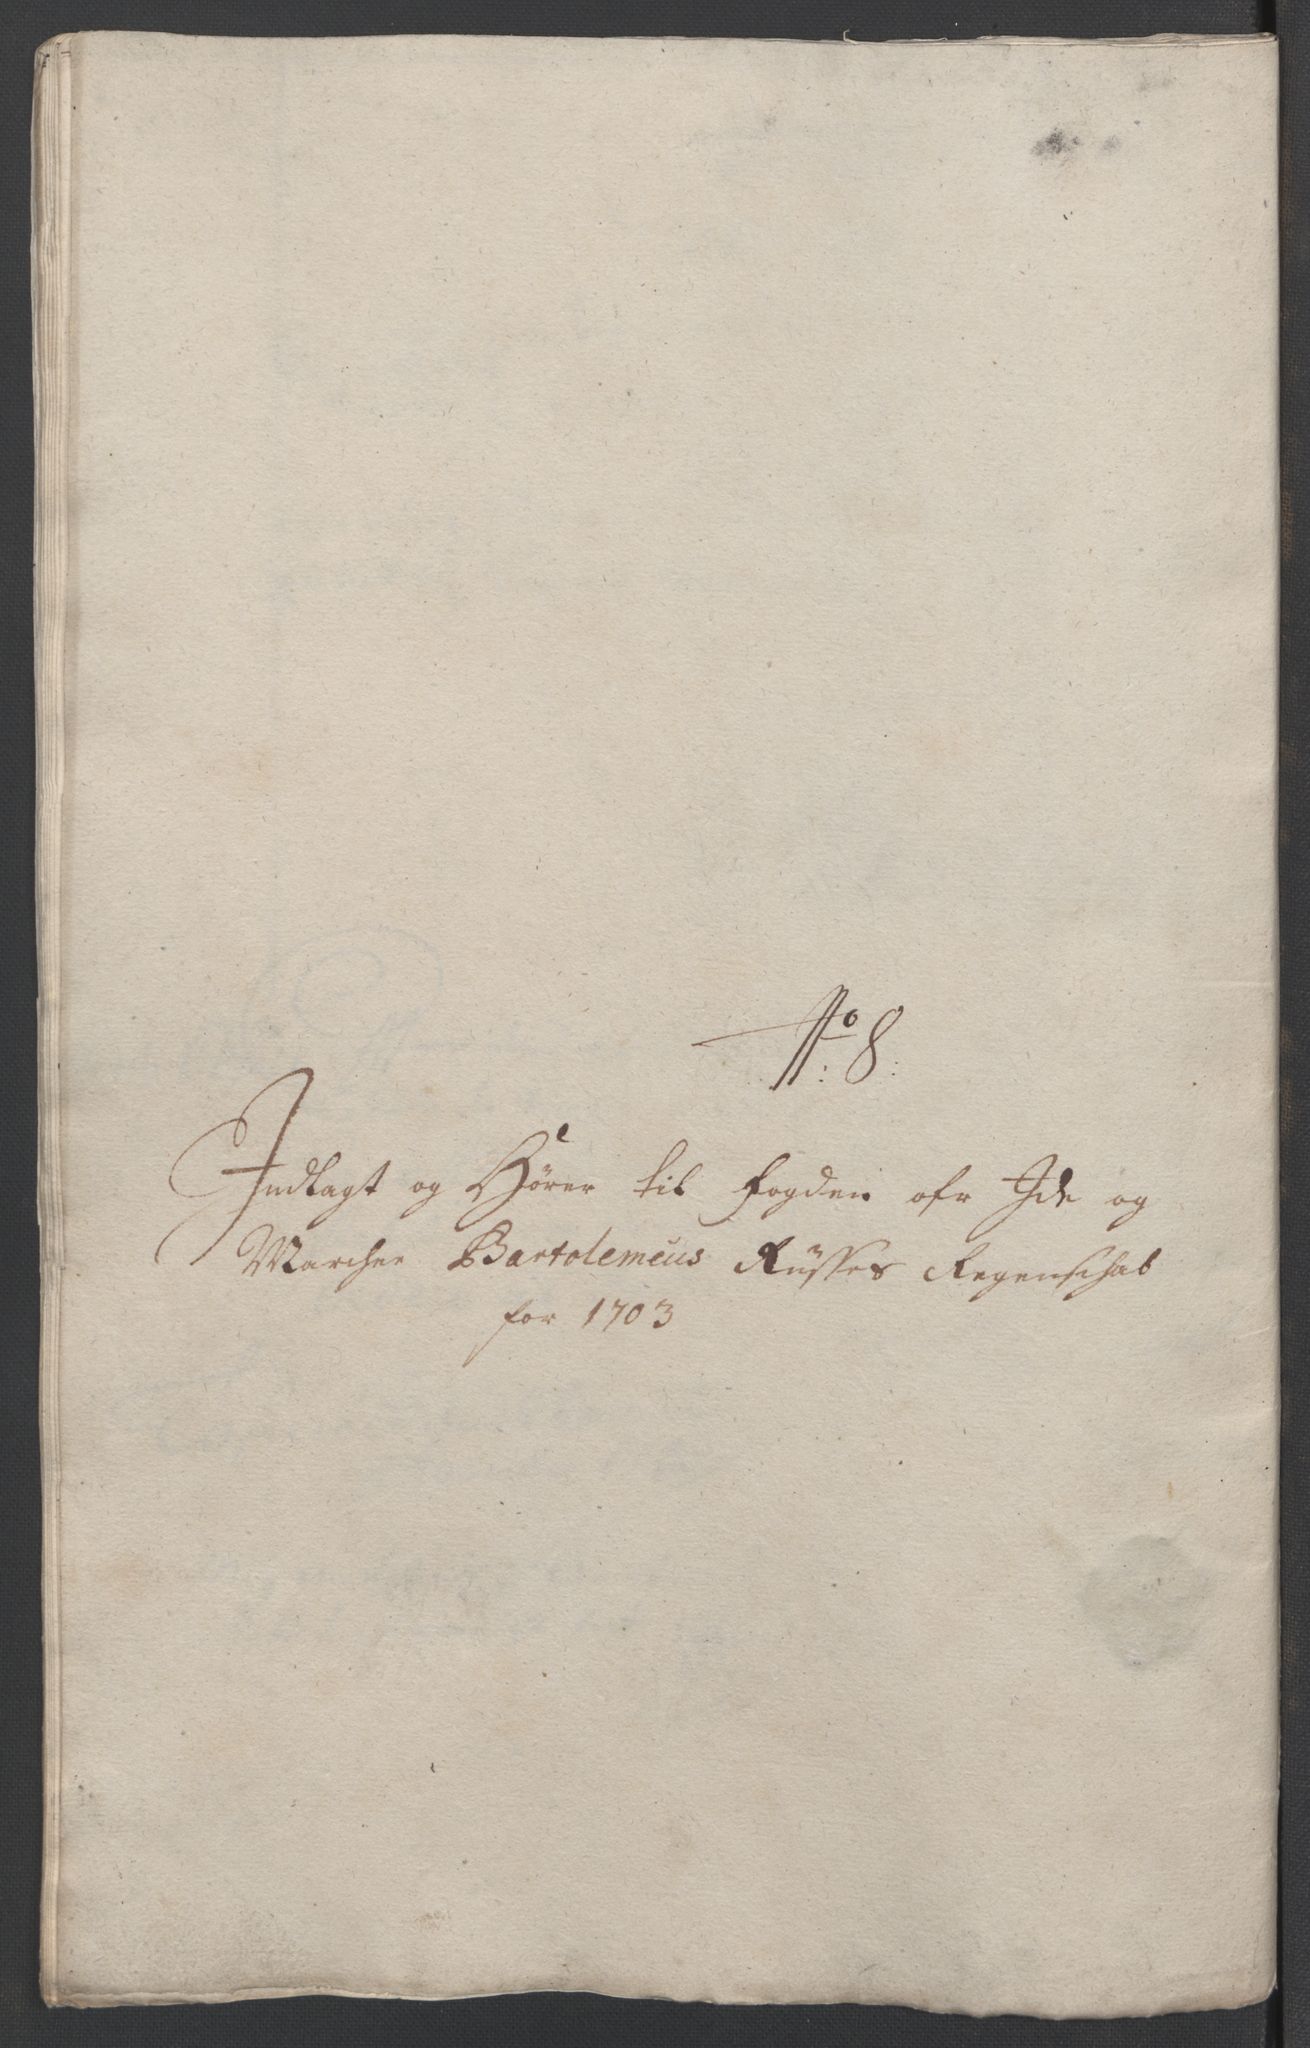 No: 8:
Indlagt og Hører til fogden ofr Ide og
Marcher Bartolemeus Rüsses Regenschab
for 1703